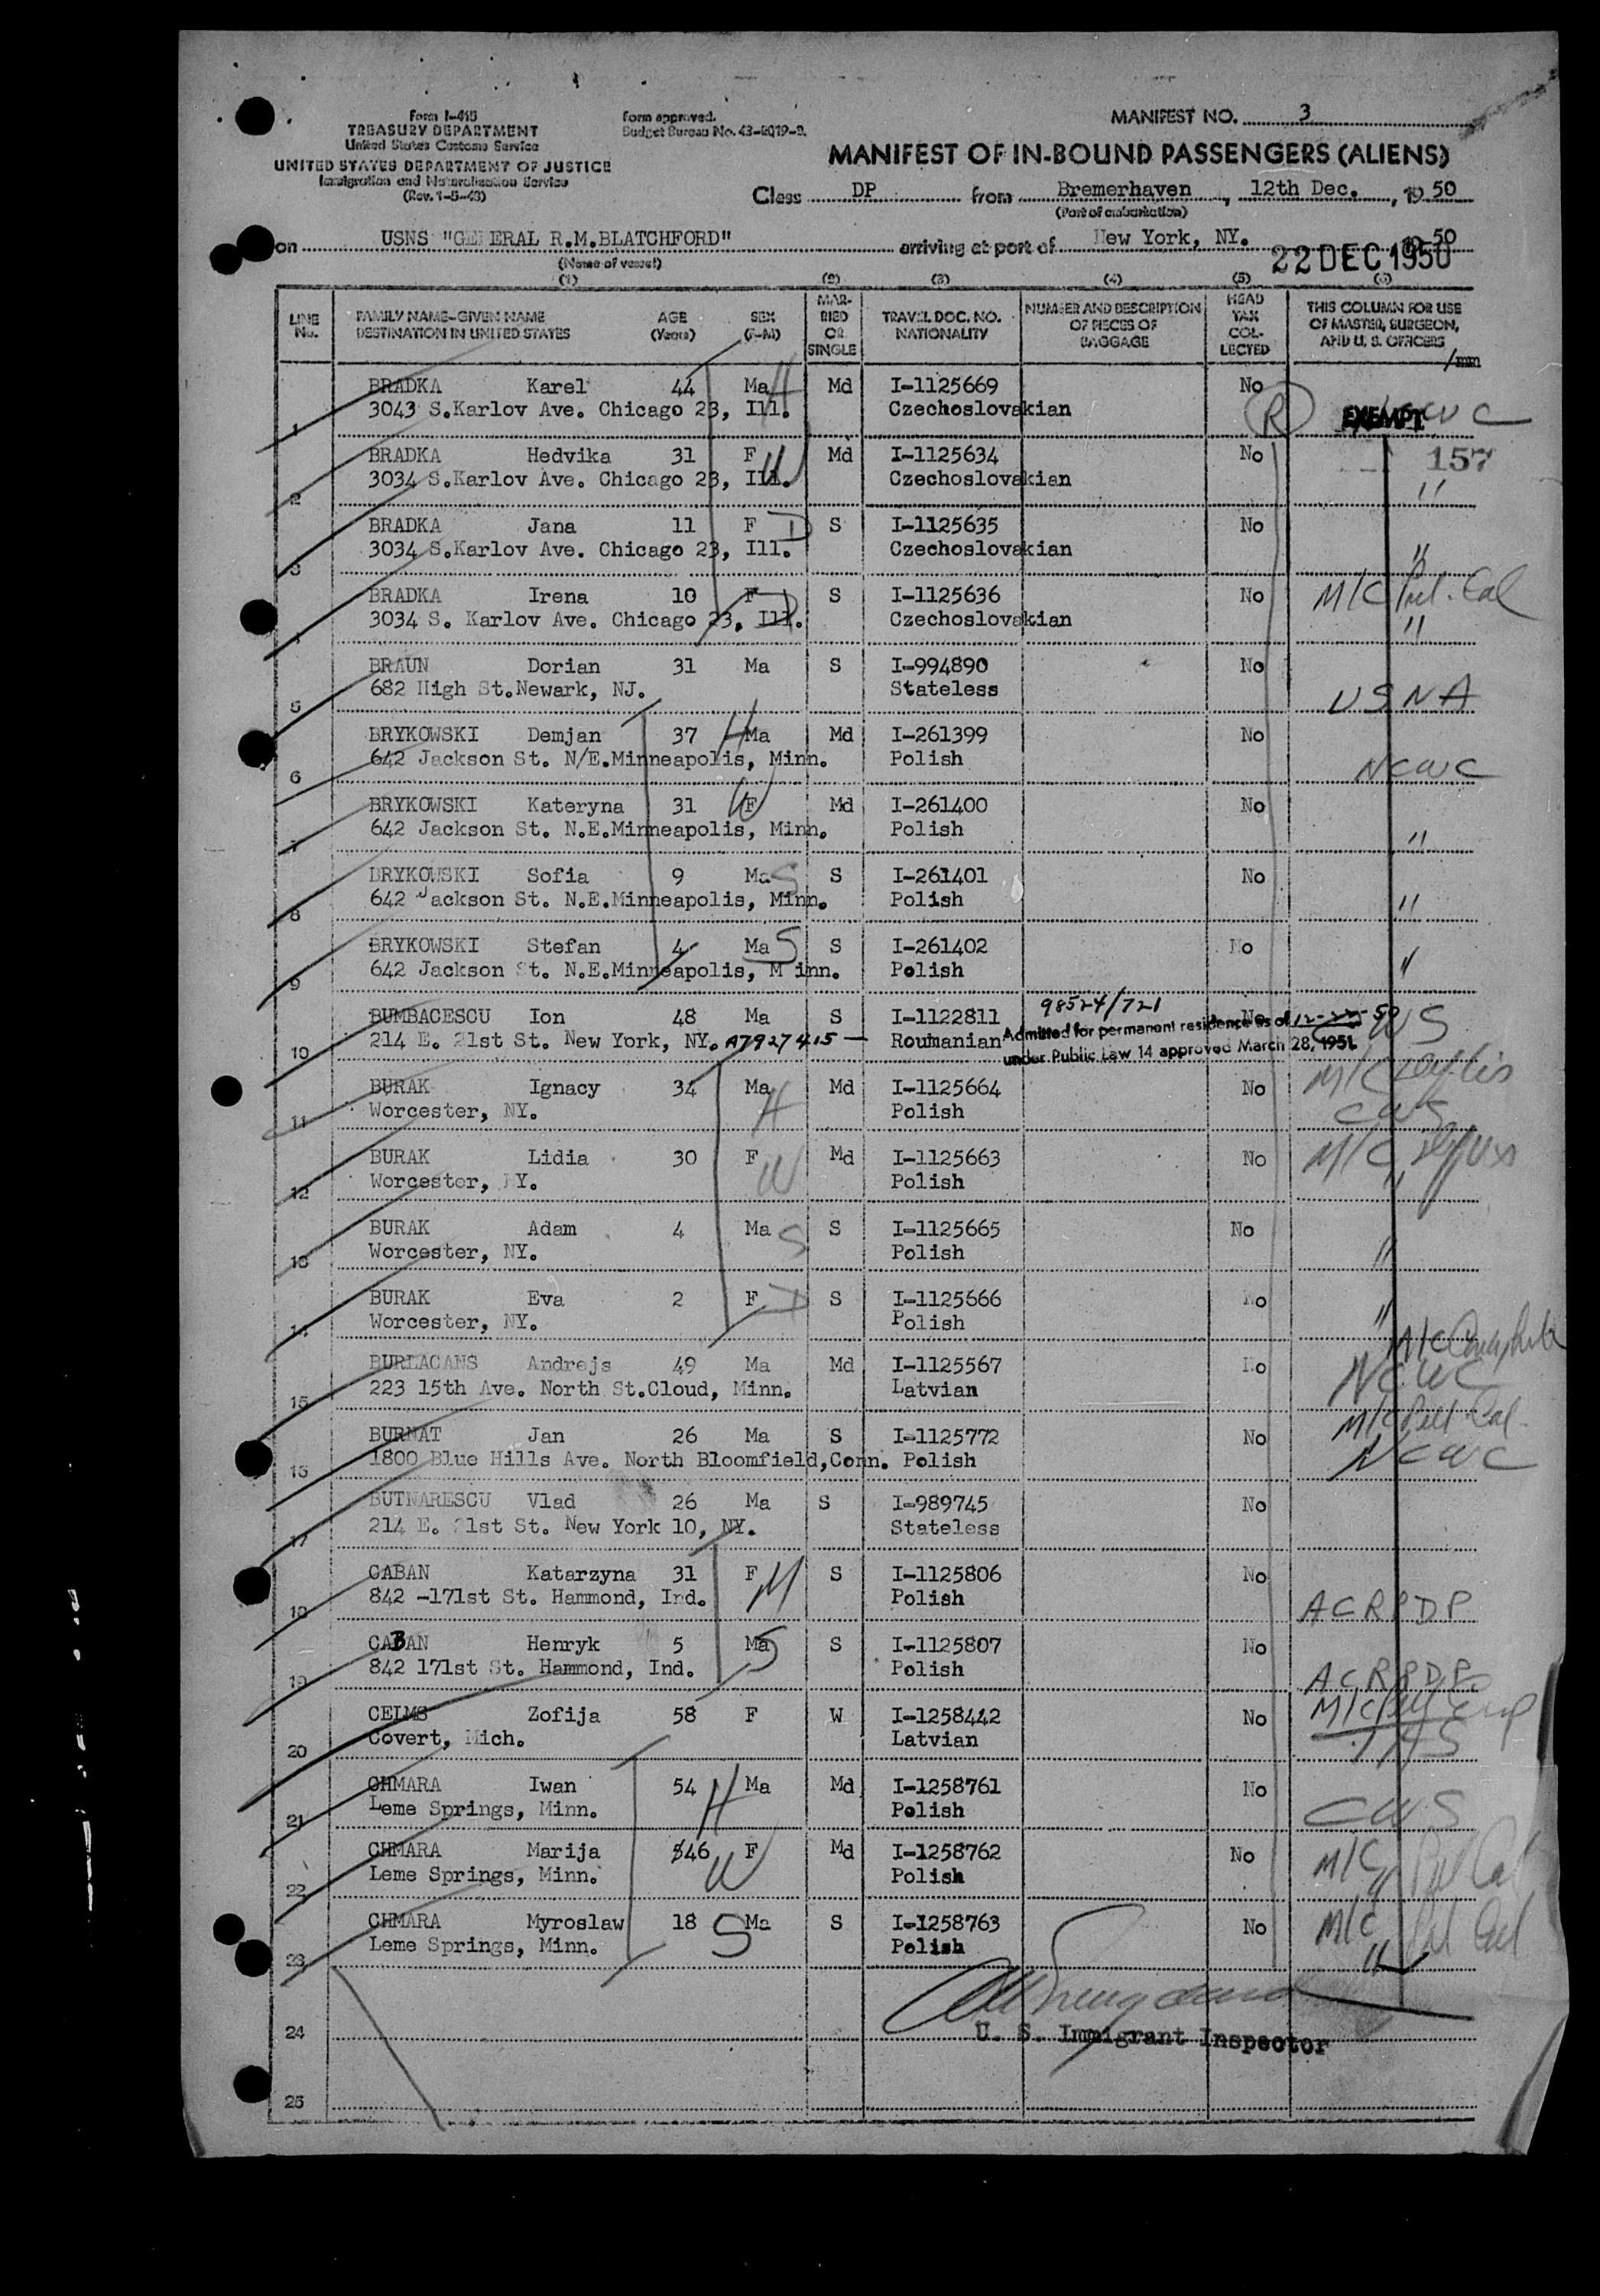 Form I-415
TREASURY DEPARTMENT
United States Customs Service
UNITED STATES DEPARTMENT OF JUSTICE
Immigration and Naturalization Service
(Rev. 1-5-43)
Form approved.
Budget Bureau No. 43-R019-2.
MANIFEST NO. 3
MANIFEST OF IN-BOUND PASSENGERS (ALIENS)
Class DP from Bremerhaven, 12th Dec., 1950
(Port of embarkation)
on USNS "GENERAL R.M.BLATCHFORD" arriving at port of New York, NY. 1950
(Name of vessel)
22 DEC 1950
(1) (2) (3) (4) (5) (6)
LINE No. FAMILY NAME-GIVEN NAME DESTINATION IN UNITED STATES AGE (Years) SEX (F-M) MARRIED OR SINGLE TRAVEL DOC. NO. NATIONALITY NUMBER AND DESCRIPTION OF PIECES OF BAGGAGE HEAD TAX COLLECTED THIS COLUMN FOR USE OF MASTER, SURGEON, AND U. S. OFFICERS
/mm
BRADKA Karel 44 Ma H Md I-1125669 No
1 3043 S.Karlov Ave. Chicago 23, Ill. Czechoslovakian R EXEMPT
BRADKA Hedvika 31 F W Md I-1125634 No 157
2 3034 S.Karlov Ave. Chicago 23, Ill. Czechoslovakian "
BRADKA Jana 11 F D S I-1125635 No
3 3034 S.Karlov Ave. Chicago 23, Ill. Czechoslovakian "
BRADKA Irena 10 F D S I-1125636 No M/C Pul. Cal
4 3034 S. Karlov Ave. Chicago 23, Ill. Czechoslovakian "
BRAUN Dorian 31 Ma S I-994890 No
5 682 High St.Newark, NJ. Stateless USNA
BRYKOWSKI Demjan 37 H Ma Md I-261399 No
6 642 Jackson St. N/E.Minneapolis, Minn. Polish NCWC
BRYKOWSKI Kateryna 31 W F Md I-261400 No
7 642 Jackson St. N.E.Minneapolis, Minn. Polish "
BRYKOWSKI Sofia 9 Ma S S I-261401 No
8 642 Jackson St. N.E.Minneapolis, Minn. Polish "
BRYKOWSKI Stefan 4 Ma S S I-261402 No
9 642 Jackson St. N.E.Minneapolis, Minn. Polish "
98524/721
BUMBACESCU Ion 48 Ma S I-1122811 No CWS
10 214 E. 21st St. New York, NY. A7927415 — Roumanian
Admitted for permanent residence as of 12-22-50
under Public Law 14 approved March 28, 1951.
BURAK Ignacy 34 Ma H Md I-1125664 No M/C
11 Worcester, NY. Polish CWS
BURAK Lidia 30 F W Md I-1125663 No M/C
12 Worcester, NY. Polish "
BURAK Adam 4 Ma S S I-1125665 No
13 Worcester, NY. Polish "
BURAK Eva 2 F D S I-1125666 No
14 Worcester, NY. Polish "
BURLACANS Andrejs 49 Ma Md I-1125567 No M/C
15 223 15th Ave. North St.Cloud, Minn. Latvian NCWC
BURNAT Jan 26 Ma S I-1125772 No M/C Pul. Cal.
16 1800 Blue Hills Ave. North Bloomfield,Conn. Polish NCWC
BUTNARESCU Vlad 26 Ma S I-989745 No
17 214 E. 21st St. New York 10, NY. Stateless
CABAN Katarzyna 31 F M S I-1125806 No
18 842 -171st St. Hammond, Ind. Polish ACRPDP
CABAN Henryk 5 Ma S S I-1125807 No
19 842 171st St. Hammond, Ind. Polish ACRPDP
CELMS Zofija 58 F W I-1258442 No M/C
20 Covert, Mich. Latvian
CHMARA Iwan 54 H Ma Md I-1258761 No
21 Leme Springs, Minn. Polish CWS
CHMARA Marija 46 W F Md I-1258762 No M/C Pul Cal
22 Leme Springs, Minn. Polish "
CHMARA Myroslaw 18 S Ma S I-1258763 No M/C Pul Cal
23 Leme Springs, Minn. Polish "
24
U. S. Immigrant Inspector
25